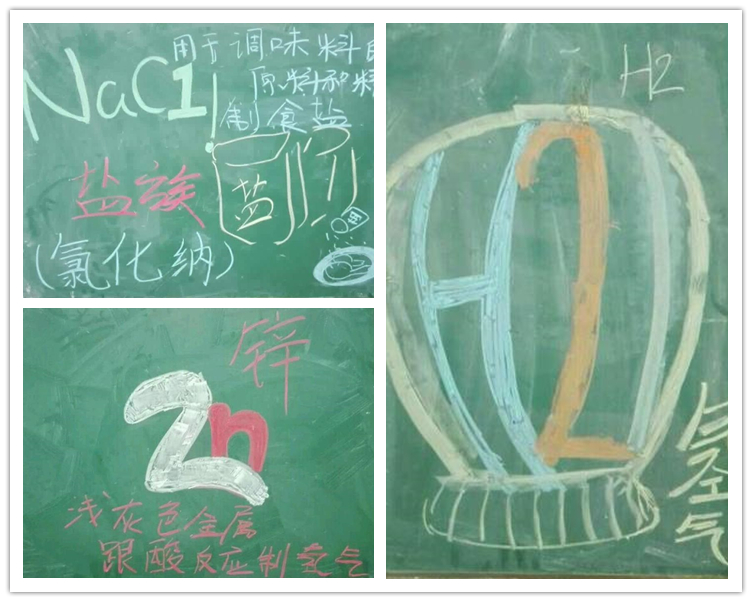 NaCl
用于调味料
原料和
制食盐
盐族
盐
(氯化纳)
锌
Zn
浅灰色金属
跟酸反应制氢气
H2
H2
氢气